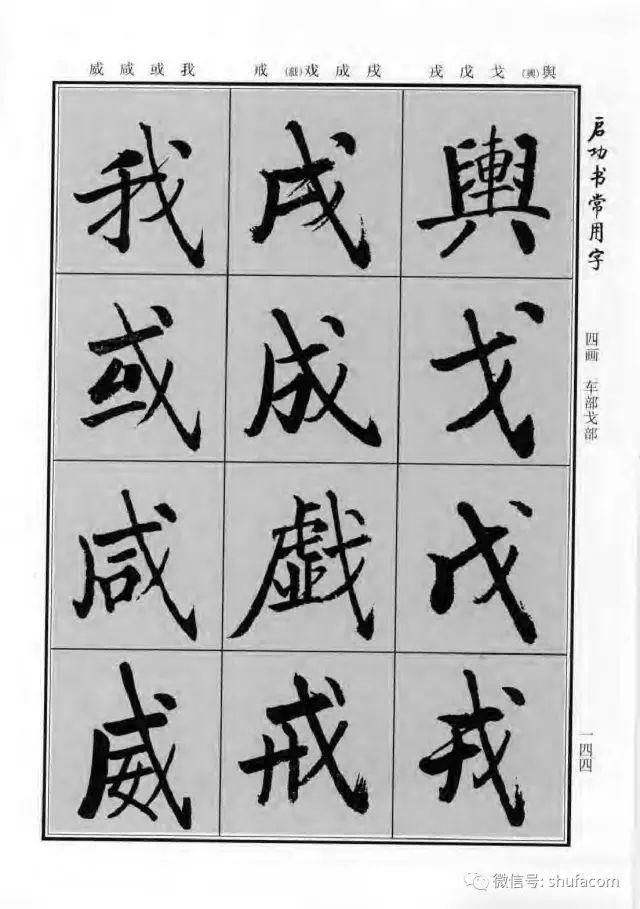 启功书常用字
四画 车部戈部
一四四
舆(輿) 戈 戊 戎
戌 成 戏(戲) 戒
我 或 咸 威
輿戈戊戎
戌成戲戒
我或咸威
微信号: shufacom